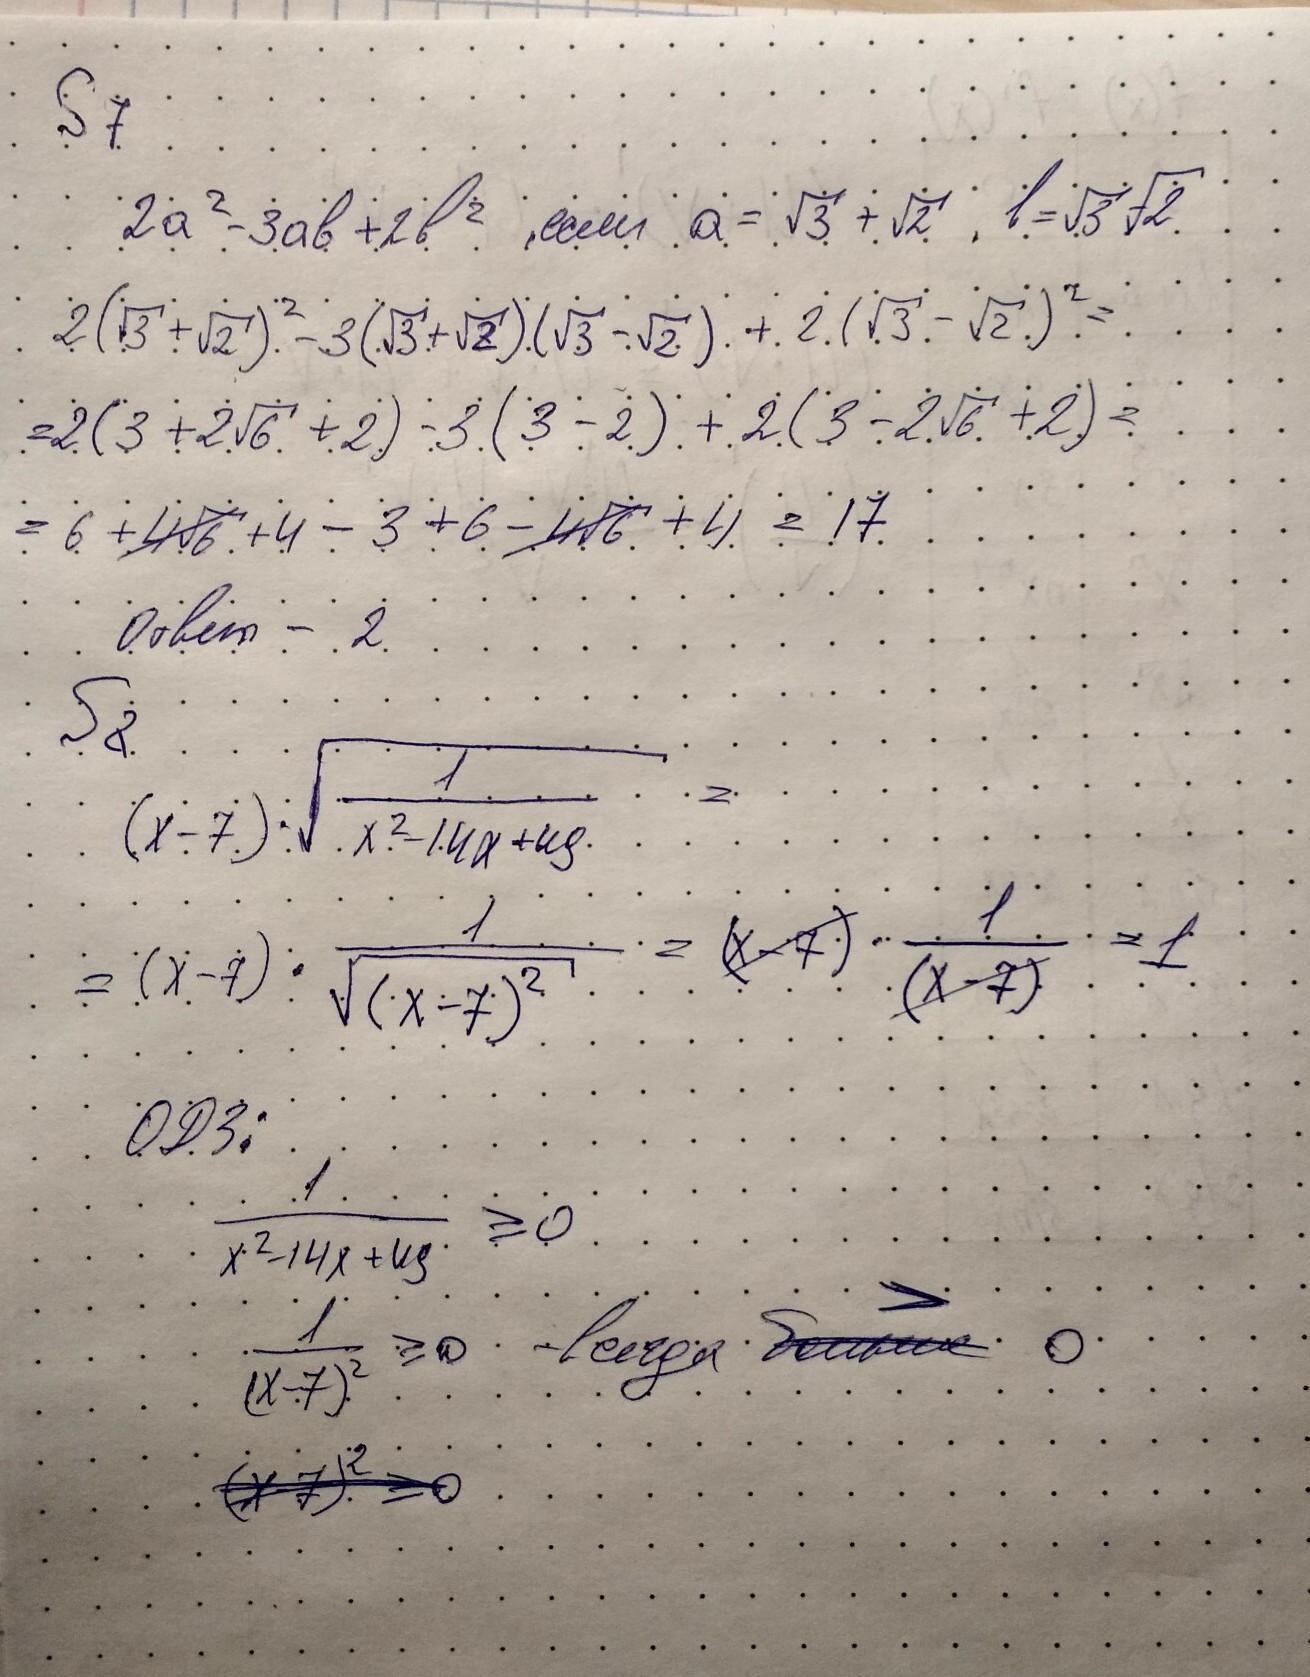 S7
2a² - 3ab + 2b², если a = √3 + √2, b = √3 - √2
2(√3 + √2)² - 3(√3 + √2)(√3 - √2) + 2(√3 - √2)² =
= 2(3 + 2√6 + 2) - 3(3 - 2) + 2(3 - 2√6 + 2) =
= 6 + 4√6 + 4 - 3 + 6 - 4√6 + 4 = 17
Ответ - 2
S8
(x - 7) · √(1/(x² - 14x + 49)) =
= (x - 7) · 1/√((x - 7)²) = (x - 7) · 1/(x - 7) = 1
ОДЗ:
1/(x² - 14x + 49) ≥ 0
1/(x - 7)² ≥ 0 - всегда больше > 0
(x - 7)² ≥ 0